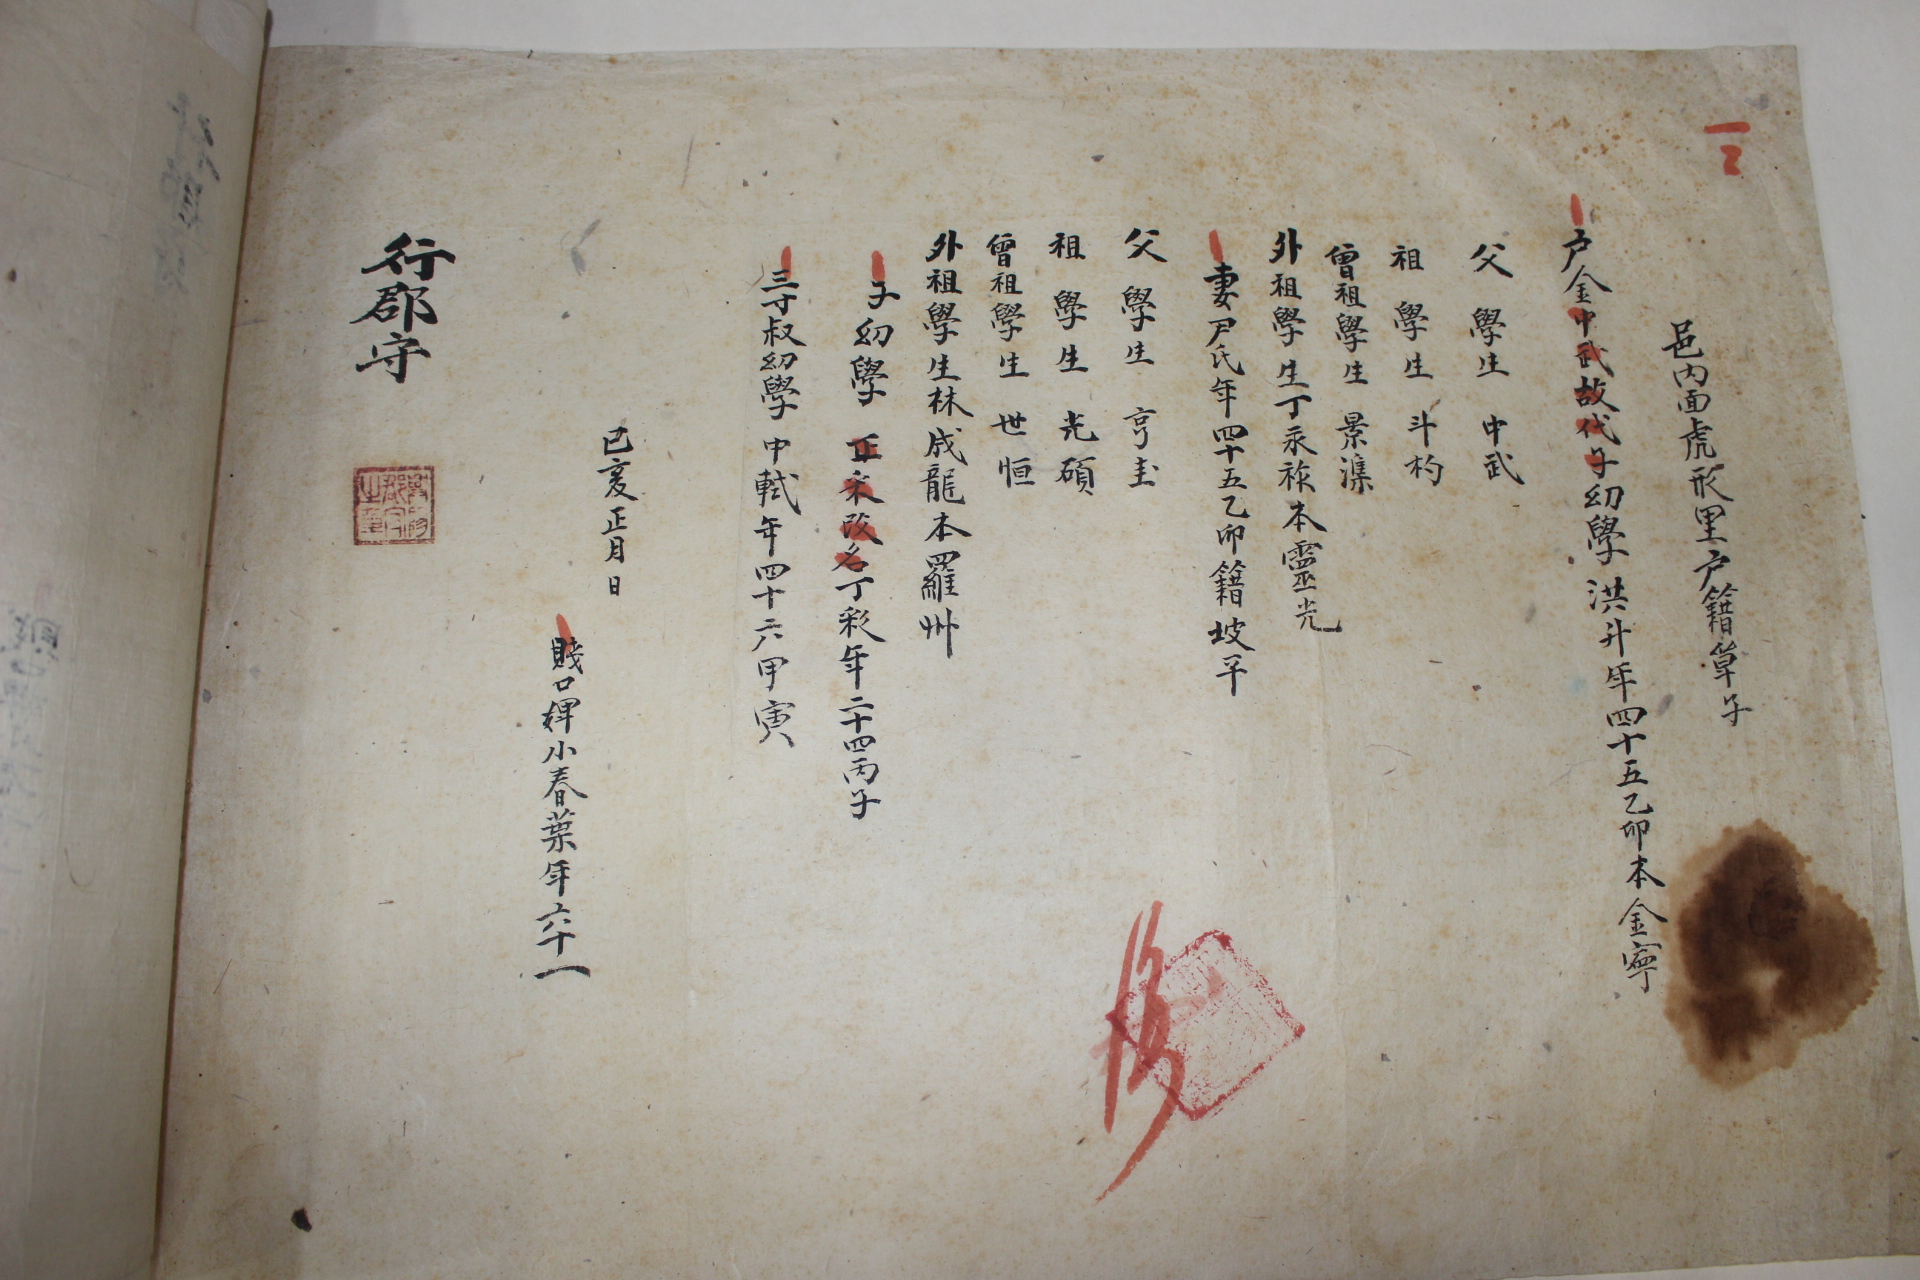 邑内面虎形里戶籍草子
戶金中武故代子幼學洪升年四十五乙卯本金寧
父學生中武
祖學生斗杓
曾祖學生景漢
外祖學生丁永祚本靈光
妻尹氏年四十五乙卯籍坡平
父學生亨圭
祖學生光碩
曾祖學生世恒
外祖學生林成龍本羅州
子幼學正釆改名丁彩年二十四丙子
三寸叔幼學中軾年四十六甲寅
己亥正月日
賤口婢小春葉年六十一
行郡守